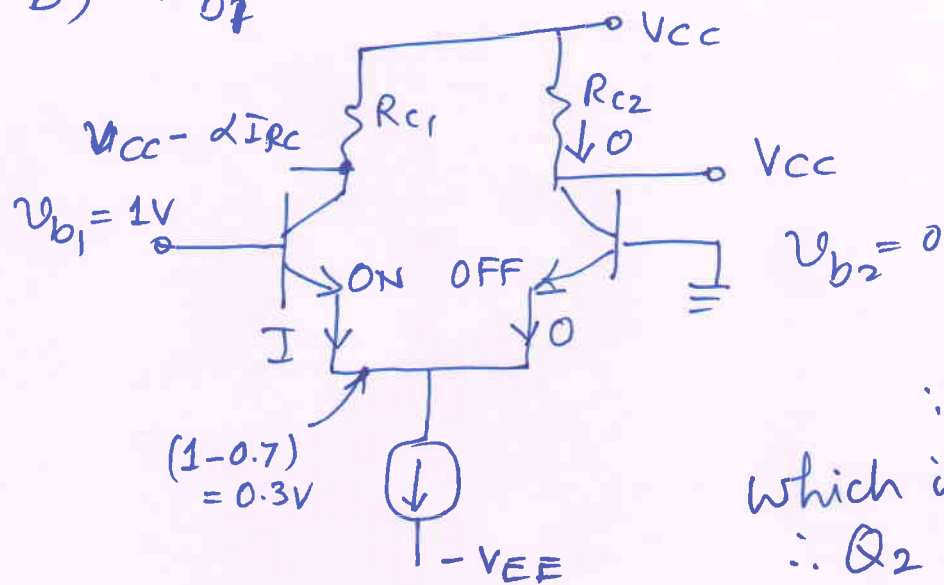 VCC
RC1
RC2
↓ 0
VCC - αIRC
VCC
υb1 = 1V
υb2 = 0
ON OFF
I
0
(1-0.7)
= 0.3V
∴
which
- VEE
∴ Q2